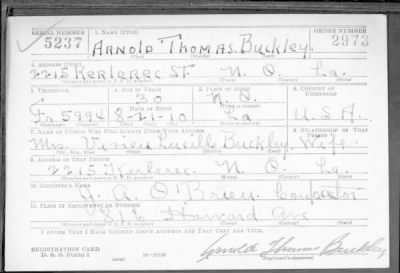 SERIAL NUMBER 1. NAME (Print) ORDER NUMBER
5237 ARNOLD THOMAS. BUCKLEY. 2973
(First) (Middle) (Last)
2. ADDRESS (Print)
2215 Kerlerec St. N. O. La.
3. TELEPHONE 4. AGE IN YEARS 5. PLACE OF BIRTH 6. COUNTRY OF CITIZENSHIP
30 N. O.
DATE OF BIRTH
Fr 5994 8-21-10 La U.S.A.
7. NAME OF PERSON WHO WILL ALWAYS KNOW YOUR ADDRESS 8. RELATIONSHIP OF THAT PERSON
Mrs. Vivien Lucille Buckley. Wife
9. ADDRESS OF THAT PERSON
2215 Kerlerec N. O. La.
10. EMPLOYER'S NAME
J. A. O'Brien
11. PLACE OF EMPLOYMENT OR BUSINESS
816 Howard Ave
I AFFIRM THAT I HAVE VERIFIED ABOVE ANSWERS AND THAT THEY ARE TRUE.
REGISTRATION CARD
D. S. S. FORM 1 Arnold Thomas Buckley
(Registrant's signature)